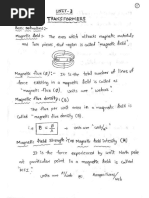 UNIT-3
TRANSFORMERS
Basic definitions:-
Magnetic field:- The area which attracts magnetic materials
and turn points, that region is called "magnetic field".
Magnetic flux (Φ):- It is the total number of lines of
force existing in a particular magnetic field is called
"magnetic flux (Φ)". Units are "webers".
Magnetic flux density:- (B)
The flux per unit area in a magnetic field is
called "magnetic flux density (B)".
B = Φ/A units are "wb/m²".
Magnetic field strength (or) Magnetic field intensity (H)
It is the force experienced by unit North pole
at particular point in a magnetic field is called
"M.F.S".
H = units are AT/m (or)